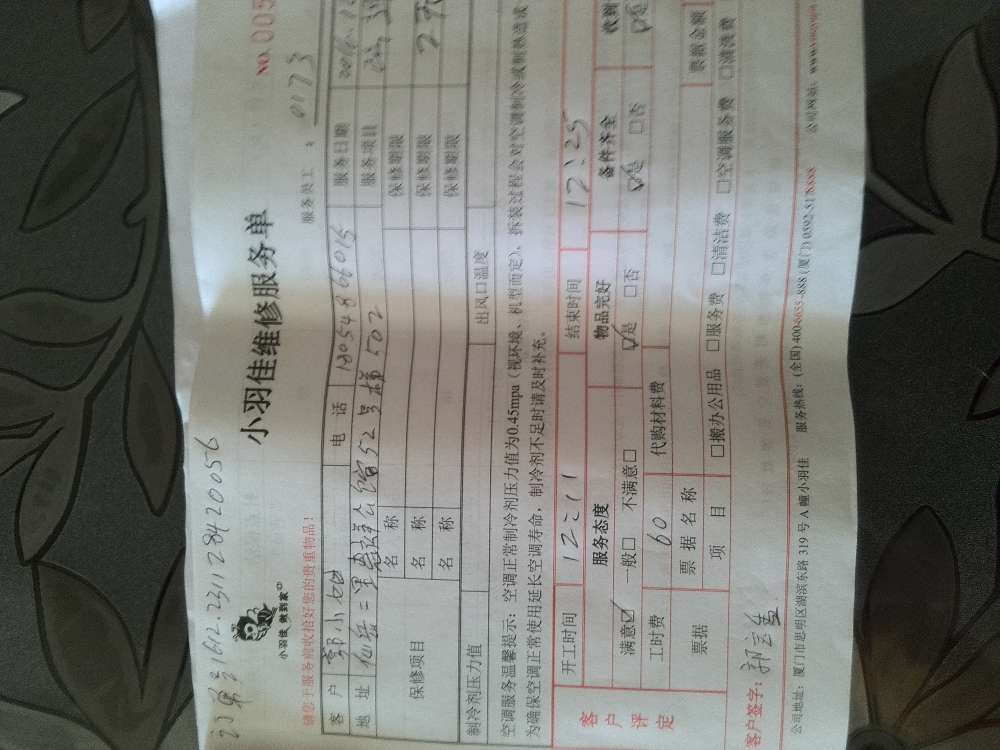 1612231128420056
小羽佳 做到家
小羽佳维修服务单
NO. 005
请您于服务前收拾好您的贵重物品!
服务员工: 0173
客户 郭小姐 电话 18054866015 服务日期
地址 52号楼 502 服务项目
保修项目 名称 保修期限
名称 保修期限
名称 保修期限
制冷剂压力值 出风口温度
空调服务温馨提示:空调正常制冷剂压力值为0.45mpa(视环境、机型而定)、拆装过程会对空调制冷或制热造成
为确保空调正常使用延长空调寿命,制冷剂不足时请及时补充。
客户评定
开工时间 12:11 结束时间 12:25
服务态度 物品完好 备件齐全 收到
满意☑ 一般□ 不满意□ ☑是 □否 ☑是 □否
工时费 60 代购材料费
票据 票据名称 票据金额
项目 □搬办公用品 □服务费 □清洁费 □空调服务费 □清洗费
客户签字:
公司地址:厦门市思明区湖滨东路 319 号 A 幢小羽佳 服务热线:(全国) 400-8655-888 (厦门) 0592-5178888 公司网站: